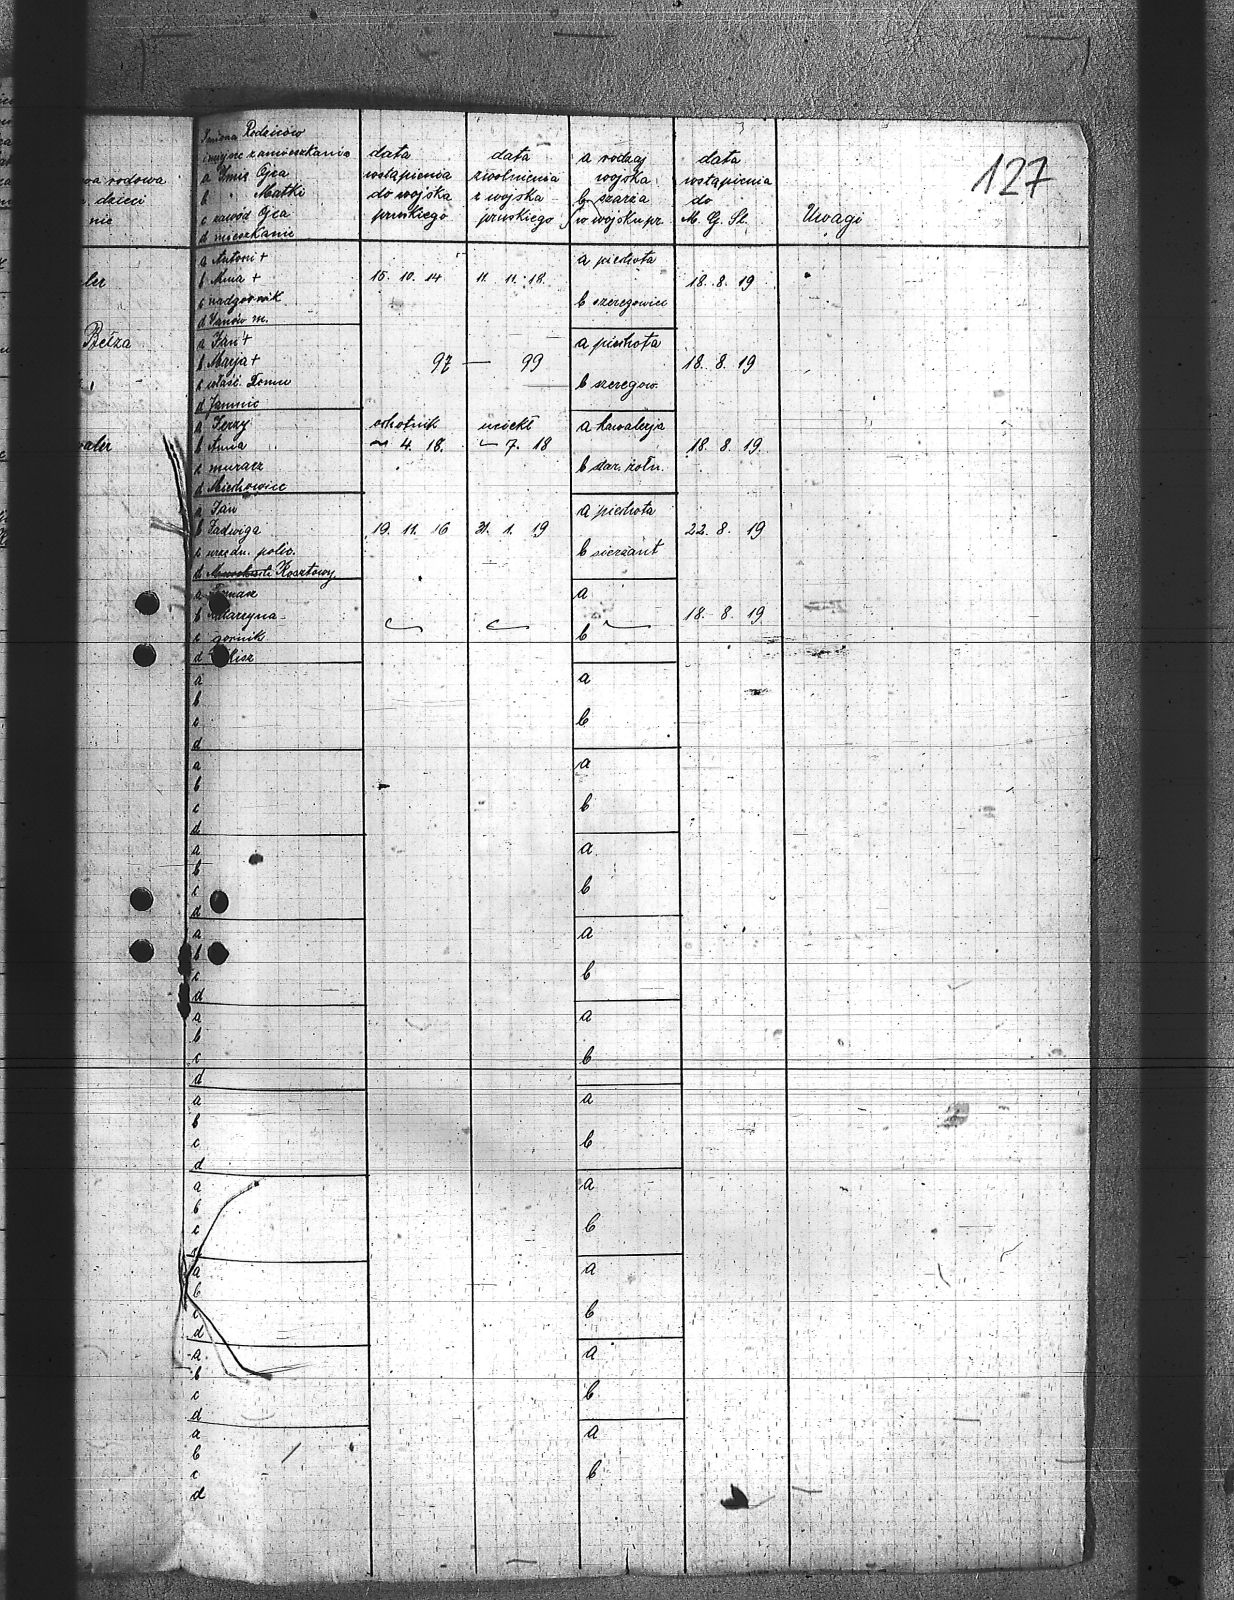 127
Imiona Rodziców
i miejsc zamieszkania
a Imię Ojca
b " Matki
c zawód Ojca
d mieszkanie
data
wstąpienia
do wojska
pruskiego
data
zwolnienia
z wojska
pruskiego
a rodzaj
wojska
b szarża
w wojsku pr.
data
wstąpienia
do
M. G. Śl.
Uwagi
rodowa
dzieci
nie
a Antoni +
b Anna +
c nadgórnik
d Janów m.
15. 10. 14
11. 11. 18
a piechota
b szeregowiec
18. 8. 19
Bełza
a Jan +
b Marja +
c właśc. Domu
d Jamnic
97 — 99
a piechota
b szeregow.
18. 8. 19
a Jerzy
b Anna
c murarz
d Miechowice
ochotnik
4. 18.
uciekł
7. 18
a kawalerja
b star. żołn.
18. 8. 19.
a Jan
b Jadwiga
c urzędn. polic.
d Kosztowy
19. 11. 16
31. 1. 19
a piechota
b sierżant
22. 8. 19
a Tomasz
b Katarzyna
c górnik
d
a
b
18. 8. 19
a
b
c
d
a
b
a
b
c
d
a
b
a
b
c
d
a
b
a
b
c
d
a
b
a
b
c
d
a
b
a
b
c
d
a
b
a
b
c
d
a
b
a
b
c
d
a
b
a
b
c
d
a
b
a
b
c
d
a
b